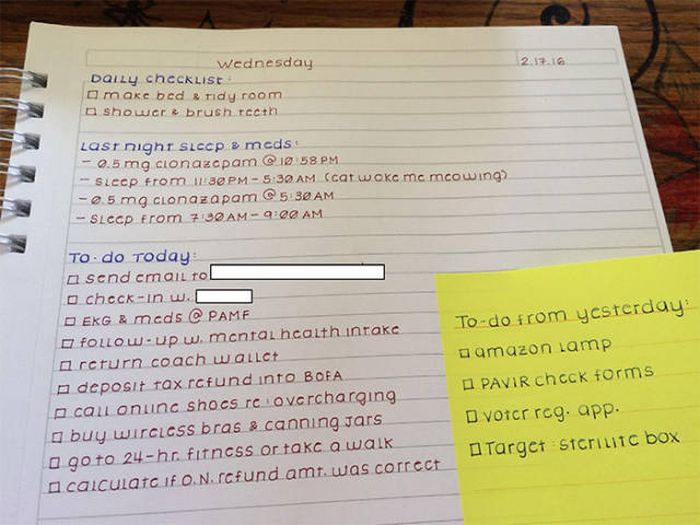 Wednesday 2.17.16
Daily checklist:
□ make bed & tidy room
□ shower & brush teeth
Last night sleep & meds:
- 0.5 mg clonazepam @ 10:58 PM
- sleep from 11:30 PM - 5:30 AM (cat woke me meowing)
- 0.5 mg clonazapam @ 5:30 AM
- sleep from 7:30 AM - 9:00 AM
To-do Today:
□ send email to
□ check-in w.
□ EKG & meds @ PAMF
□ follow-up w. mental health intake
□ return coach wallet
□ deposit tax refund into BofA
□ call online shoes re: overcharging
□ buy wireless bras & canning jars
□ go to 24-hr. fitness or take a walk
□ calculate if O.N. refund amt. was correct
To-do from yesterday:
□ amazon lamp
□ PAVIR check forms
□ voter reg. app.
□ Target: sterilite box